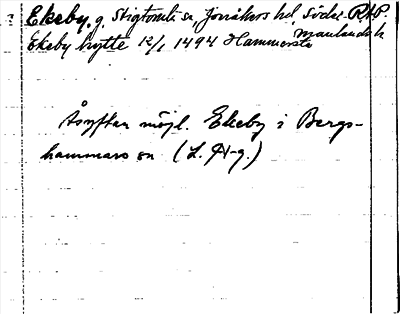 Ekeby. g. Stigtomta sn, Jönåkers hd, Söder- RAP.
manlands l.
Ekeby hytte 12/1 1494 Hammersta
Åsyftar möjl. Ekeby i Bergs-
hammars sn (L. H-g.)